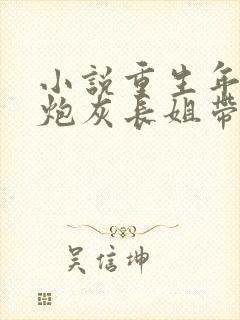 小說重生年
炮灰長姐帶
吳信坤